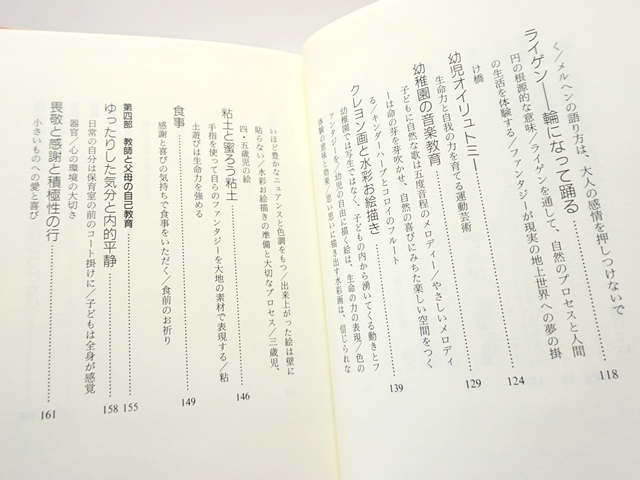 く／メルヘンの語り方は、大人の感情を押しつけないで
ライゲン――輪になって踊る………118
円の根源的な意味／ライゲンを通して、自然のプロセスと人間
の生活を体験する／ファンタジーが現実の地上世界への夢の掛
け橋
幼児オイリュトミー………124
生命力と自我の力を育てる運動芸術
幼稚園の音楽教育………129
子どもに自然な歌は五度音程のメロディー／やさしいメロディ
ーは命の芽を芽吹かせ、自然の喜びにみちた楽しい空間をつく
る／キンダーハープとコロイのフルート
クレヨン画と水彩お絵描き………139
幼稚園では写生ではなく、子どもの内から湧いてくる動きとフ
ァンタジーを／幼児の自由に描く絵は、生命の力の表現／色の
体験の意味と効果／思い思いに描き出す水彩画は、信じられな
いほど豊かなニュアンスと色調をもつ／出来上がった絵は壁に
貼らない／水彩お絵描きの準備と大切なプロセス／三歳児、
四・五歳児の絵
粘土と蜜ろう粘土………146
手指を使って自らのファンタジーを大地の素材で表現する／粘
土遊びは生命力を強める
食事………149
感謝と喜びの気持ちで食事をいただく／食前のお祈り
第四部 教師と父母の自己教育………155
ゆったりした気分と内的平静………158
日常の自分は保育室の前のコート掛けに／子どもは全身が感覚
器官／心の環境の大切さ
畏敬と感謝と積極性の行………161
小さいものへの愛と喜び